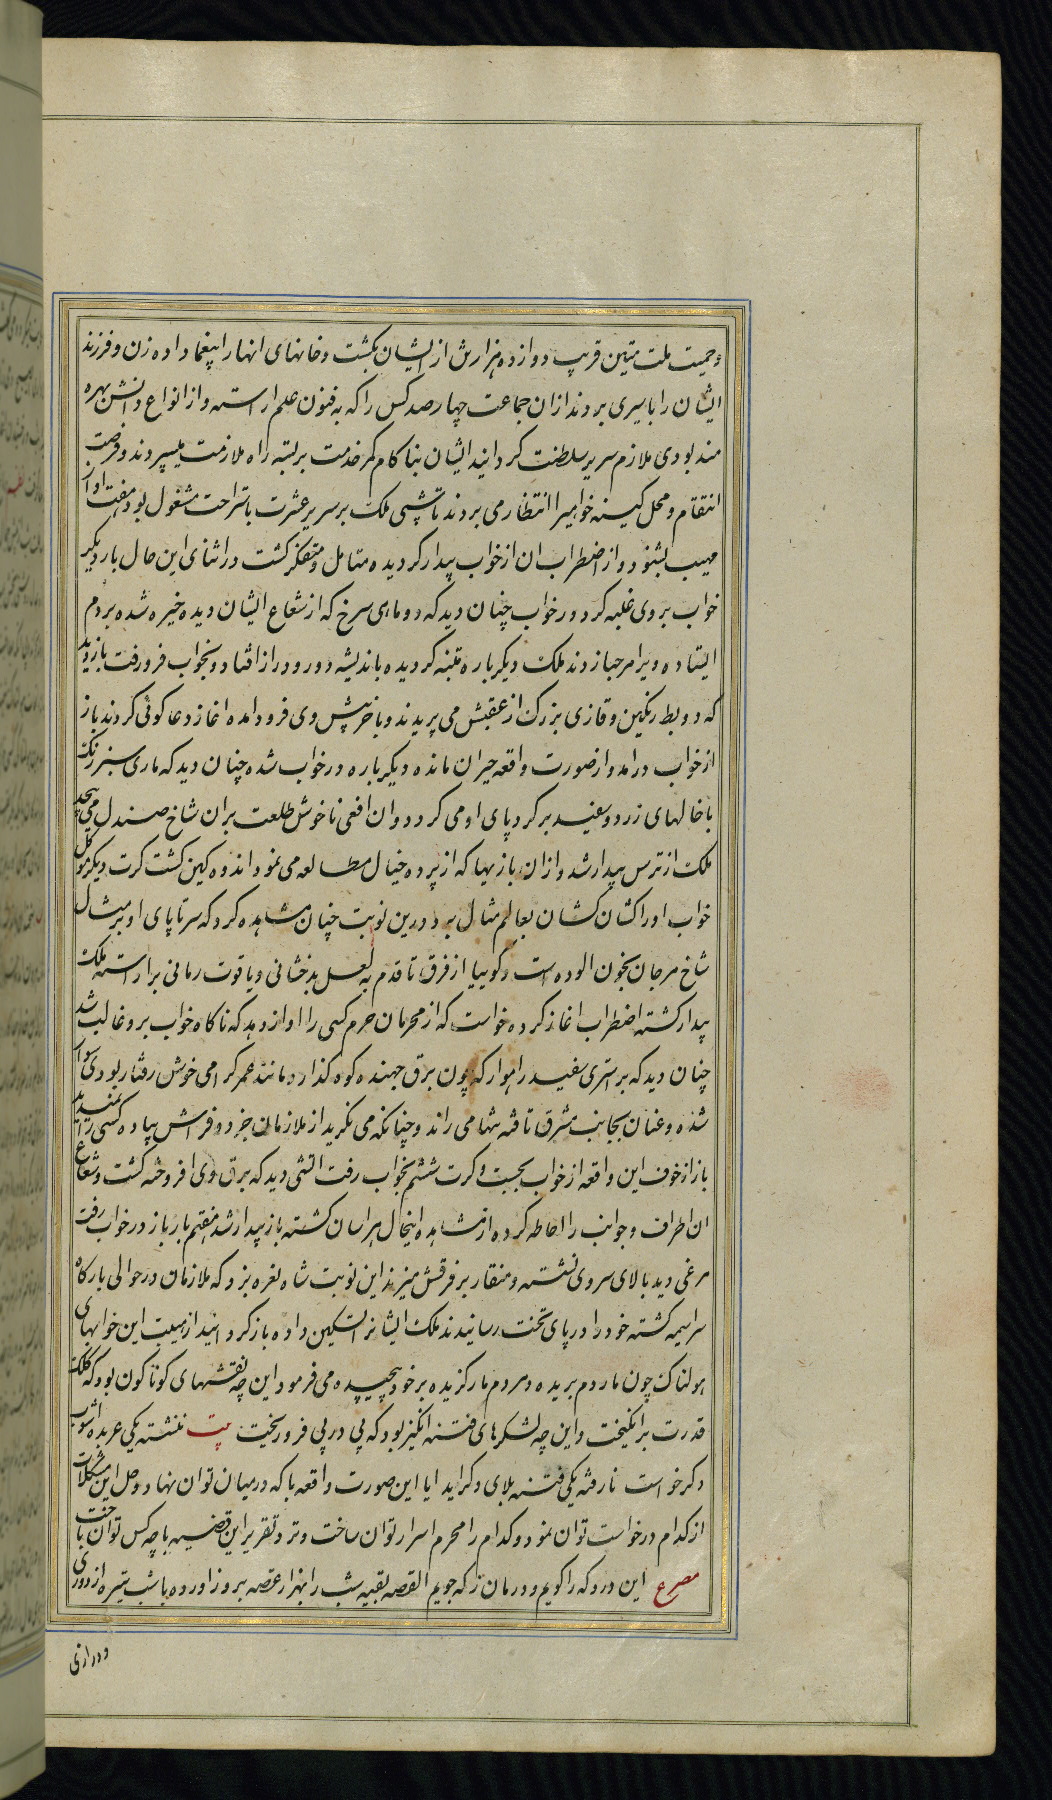 و حمیت ملت متین قریب دوازده هزارش از ایشان بکشت و خانهای انها را بیغما داده زن و فرزند
ایشان را باسیری بردند از ان جماعت چهارصد کس را که به فنون علم اراسته و از انواع دانش بهره
مند بودی ملازم سریر سلطنت کردانید ایشان بناکام کمر خدمت بر بسته راه ملازمت میسپردند و فرصت
انتقام و محل کینه خواهی را انتظار می بردند تا شبی ملک بر سریر عشرت باستراحت مشغول بود هفت اواز
مهیب بشنود و از اضطراب ان از خواب بیدار کردیده متامل و متفکر کشت در اثنای این حال بار دیکر
خواب بر وی غلبه کرد و در خواب چنان دید که دو ماهی سرخ که از شعاع ایشان دیده خیره شده بر دم
ایستاده ویرا مرحبا زدند ملک دیکر باره متنبه کردیده باندیشه دور و دراز افتاد و بخواب فرو رفت باز دید
که دو بط رنکین و قازی بزرک از عقبش می پریدند و باخر پیش وی فرود امده اغاز دعا کوئی کردند باز
از خواب درامد و از صورت واقعه حیران مانده دیکر باره در خواب شده چنان دید که ماری سبز رنک
با خالهای زرد و سفید بر کرد پای او می کردد و ان افعی ناخوش طلعت بران شاخ صندل می پیچد
ملک از ترس بیدار شد و از ان بازیها که از پرده خیال مطالعه می نمود اندوه کین کشت کرت دیکر موکل
خواب او را کشان کشان بعالم مثال برد درین نوبت چنان مشاهده کرد که سر تا پای او بر مثال
شاخ مرجان بخون الوده است و کوییا از فرق تا قدم به لعل بدخشانی و یاقوت رمانی براراسته ملک
بیدار کشته اضطراب اغاز کرده خواست که از محرمان حرم کسی را اواز دهد که ناکاه خواب برو غالب شد
چنان دید که بر استری سفید راهوار که چون برق جهنده کوه کذار و مانند عمر کرامی خوش رفتار بودی سوار
شده و عنان بجانب مشرق تافته تنها می راند و چنانکه می نکرید از ملازمان جز دو فراش پیاده کسی را نمیدید
باز از خوف این واقعه از خواب بجست و کرت ششم بخواب رفت اتشی دید که بر فرق وی افروخته کشت و شعاع
ان اطراف و جوانب را احاطه کرده از مشاهده اینحال هراسان کشته باز بیدار شد هفتم بار باز در خواب رفت
مرغی دید بالای سر وی نشسته و منقار بر فرقش میزند این نوبت شاه نعره بزد که ملازمان در حوالی بارکاه
سراسیمه کشته خود را در پای تخت رسانیدند ملک ایشانرا تسکین داده باز کردانید از هیبت این خوابهای
هولناک چون مار دم بریده و مردم مار کزیده بر خود پیچیده می فرمود این چه نقشهای کوناکون بود که کلک
قدرت برانکیخت و این چه لشکرهای فتنه انکیز بود که پی در پی فرو ریخت بیت ننشسته یکی عربده اشوب
دکر خواست نارفته یکی فتنه بلای دکر اید ایا این صورت واقعه با که در میان توان نهاد و حل این مشکلات
از کدام درخواست توان نمود و کدام را محرم اسرار توان ساخت و نرد تقریر این قضیه با چه کس توان باخت
مصرع این درد که را کویم و درمان ز که جویم القصه بقیه شب را بهزار غصه بروز اورده با شب تیره از دوری
و درازی